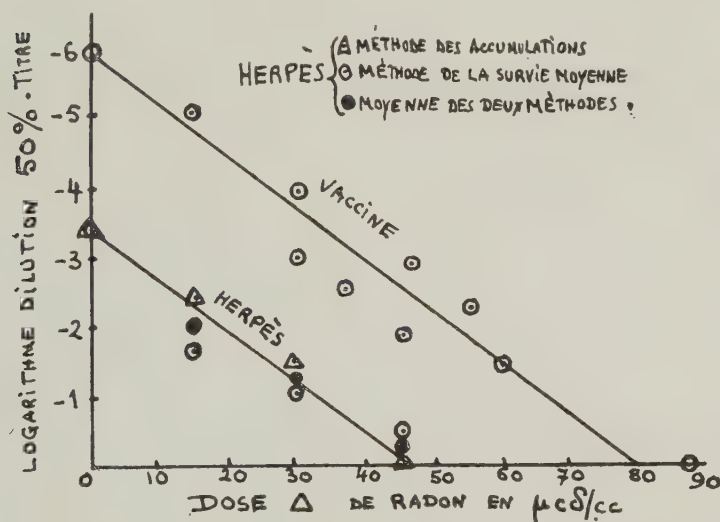 LOGARITHME DILUTION 50%-TITRE
-6
-5
-4
-3
-2
-1
HERPÈS
MÉTHODE DES ACCUMULATIONS
MÉTHODE DE LA SURVIE MOYENNE
MOYENNE DES DEUX MÉTHODES.
VACCINE
HERPÈS
0 10 20 30 40 50 60 70 80 90
DOSE Δ DE RADON EN µcδ/cc